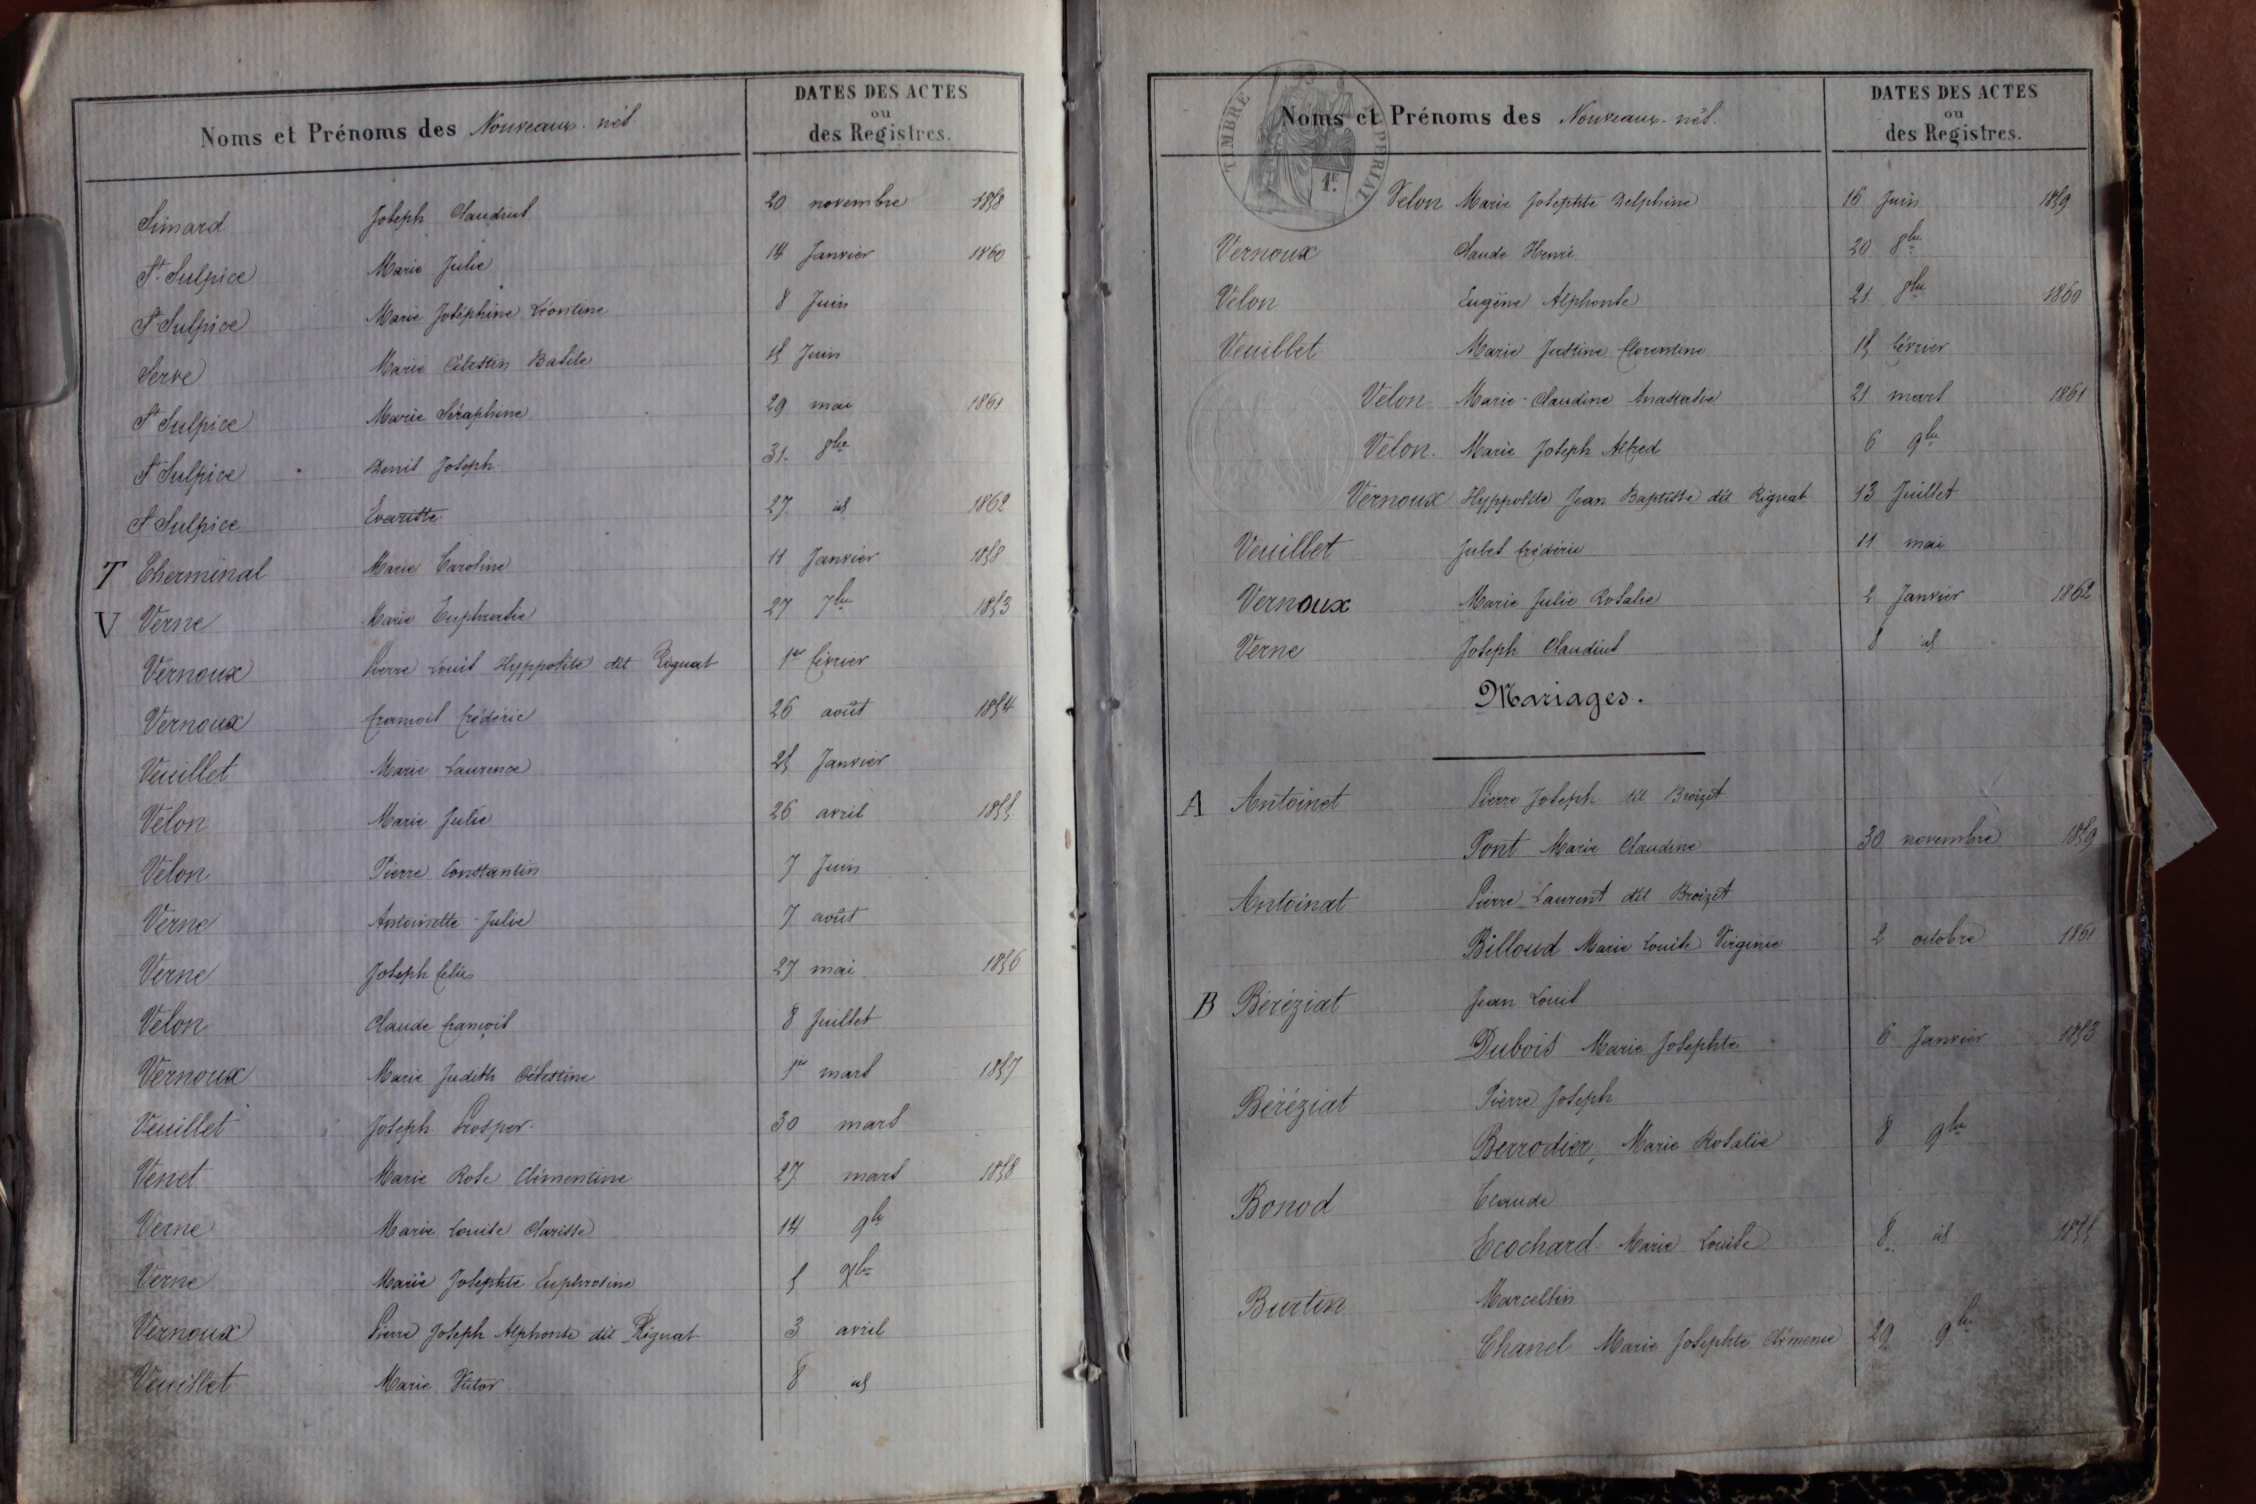 Noms et Prénoms des Nouveaux-nés
DATES DES ACTES
ou
des Registres.
Simard Joseph Claudius 20 novembre 1858
St Sulpice Marie Julie 14 Janvier 1860
St Sulpice Marie Joséphine Léontine 8 Juin
Serve Marie Célestin Basile 15 Juin
St Sulpice Marie Séraphine 29 mai 1861
St Sulpice Denis Joseph 31 8bre
St Sulpice Evariste 27 id 1862
T Therminal Marie Caroline 11 Janvier 1858
V Verne Marie Euphrasie 27 7bre 1853
Vernoux Pierre Louis Hyppolite dit Rignat 1er février
Vernoux françois frédéric 26 août 1854
Veuillet Marie Laurence 25 Janvier
Velon Marie Julie 26 avril 1855
Velon Pierre Constantin 7 Juin
Verne Antoinette-Julie 7 août
Verne Joseph félix 27 mai 1856
Velon Claude françois 8 Juillet
Vernoux Marie Judith Célestine 1er mars 1857
Veuillet Joseph Prosper 30 mars
Venet Marie Rose Clémentine 27 mars 1858
Verne Marie Louise Clarisse 14 9bre
Verne Marie Josephte Euphrosine 5 Xbre
Vernoux Pierre Joseph Alphonse dit Rignat 3 avril
Veuillet Marie 8 id
Noms et Prénoms des Nouveaux-nés.
DATES DES ACTES
ou
des Registres.
TIMBRE IMPERIAL
1F.
Velon Marie Josephte Delphine 16 Juin 1859
Vernoux Claude Henri 20 8bre
Velon Eugène Alphonse 21 8bre 1860
Veuillet Marie Justine florentine 15 février
Velon Marie-Claudine Anastasie 21 mars 1861
Velon Marie Joseph Alfred 6 9bre
Vernoux Hyppolite Jean Baptiste dit Rignat 13 Juillet
Veuillet Jules frédéric 11 mai
Vernoux Marie Julie Rosalie 2 Janvier 1862
Verne Joseph Claudius 8 id
Mariages.
A Antoinet Pierre Joseph dit Broizet
Pont Marie Claudine 30 novembre 1859
Antoinat Pierre Laurent dit Broizet
Billoud Marie Louise Virginie 2 octobre 1861
B Béréziat Jean Louis
Dubois Marie Josephte 6 Janvier 1853
Béréziat Pierre Joseph
Berrodier, Marie Rosalie 8 9bre
Bonod Claude
Ecochard Marie Louise 8 id 1855
Burtin Marcellin
Chanel Marie Josephte Climenie 29 9bre